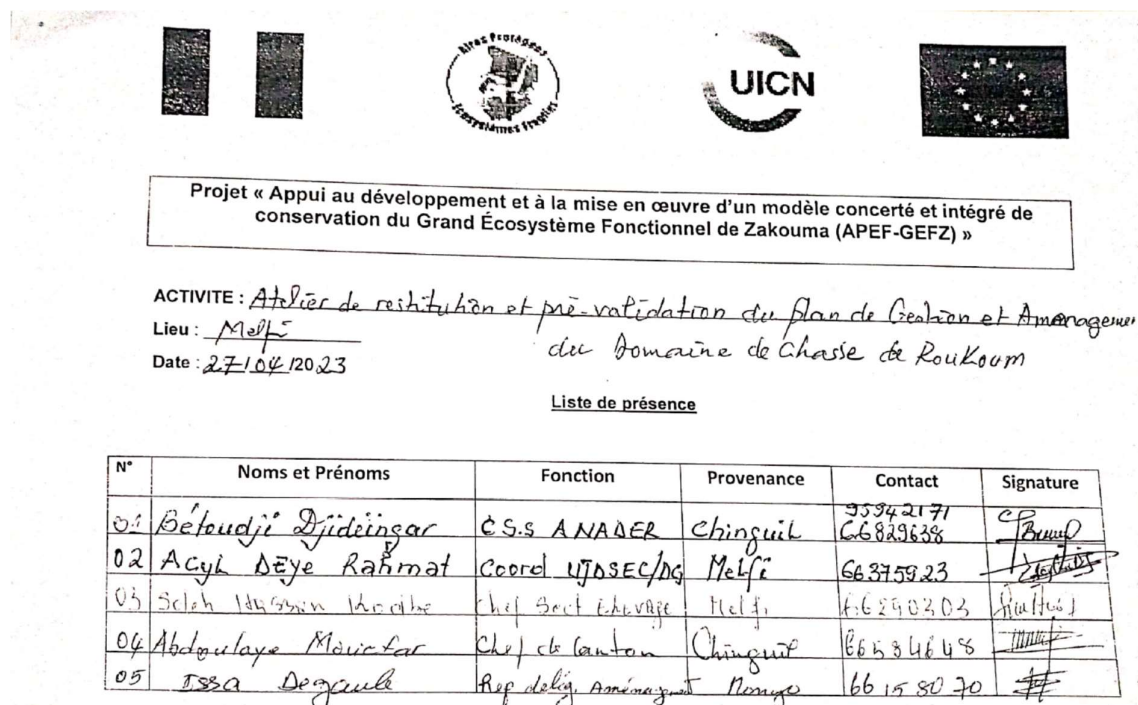 Aires Protégées
Ecosystèmes Fragiles
UICN
Projet « Appui au développement et à la mise en œuvre d'un modèle concerté et intégré de
conservation du Grand Écosystème Fonctionnel de Zakouma (APEF-GEFZ) »
ACTIVITE : Atelier de restitution et pré-validation du Plan de Gestion et Amenagemen
du Domaine de Chasse de Roukoum
Lieu : Melfi
Date : 27/04/2023
Liste de présence
N° Noms et Prénoms Fonction Provenance Contact Signature
01 Bétoudji Djideingar C.S.S ANADER Chinguil 95942171 66829638
02 Acyl DEye Rahmat Coord UJDSEC/DG Melfi 66375923
03 Saleh Hussein Chef Sect Elevage Melfi 66290303
04 Abdoulaye Mouctar Chef de Canton Chinguil 66534648
05 Issa Degaule Rep délég. Aménagemt Mongo 66158070